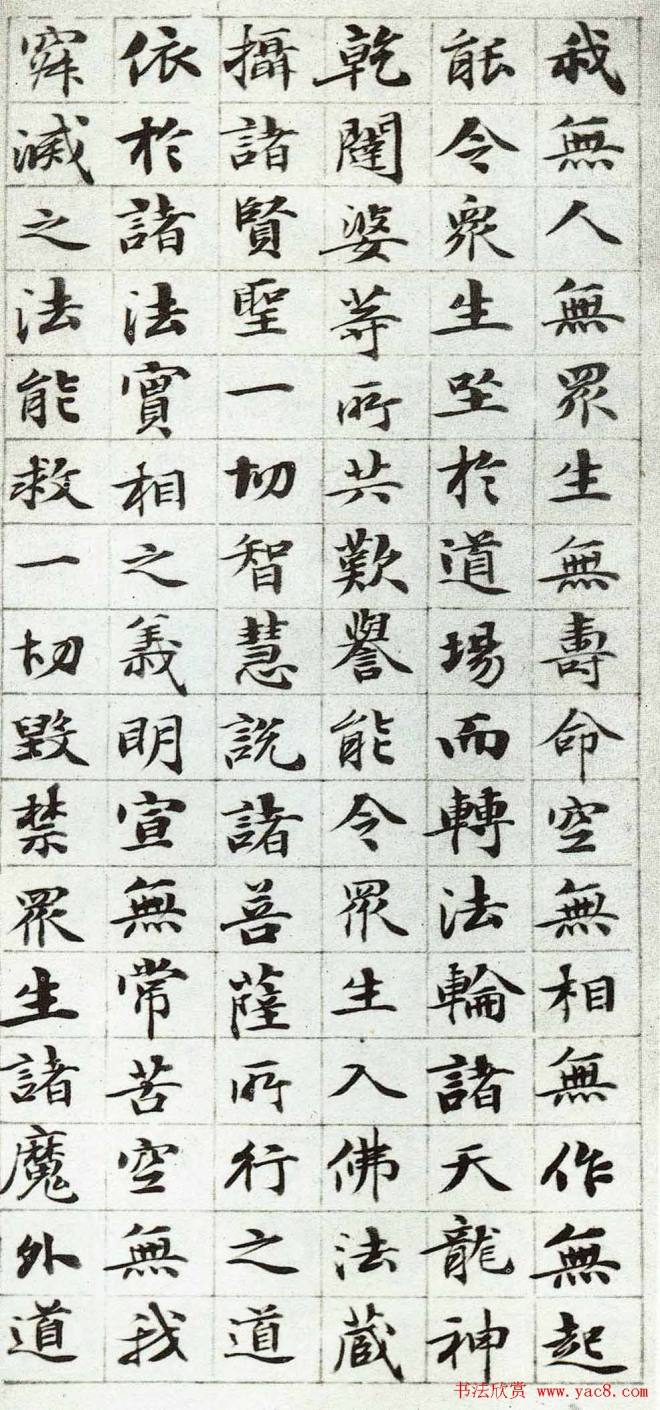 我無人無眾生無壽命空無相無作無起
能令眾生坐於道場而轉法輪諸天龍神
乾闥婆等所共歎譽能令眾生入佛法蔵
攝諸賢聖一切智慧說諸菩薩所行之道
依於諸法實相之義明宣無常苦空無我
寂滅之法能救一切毀禁眾生諸魔外道
书法欣赏 www.yac8.com